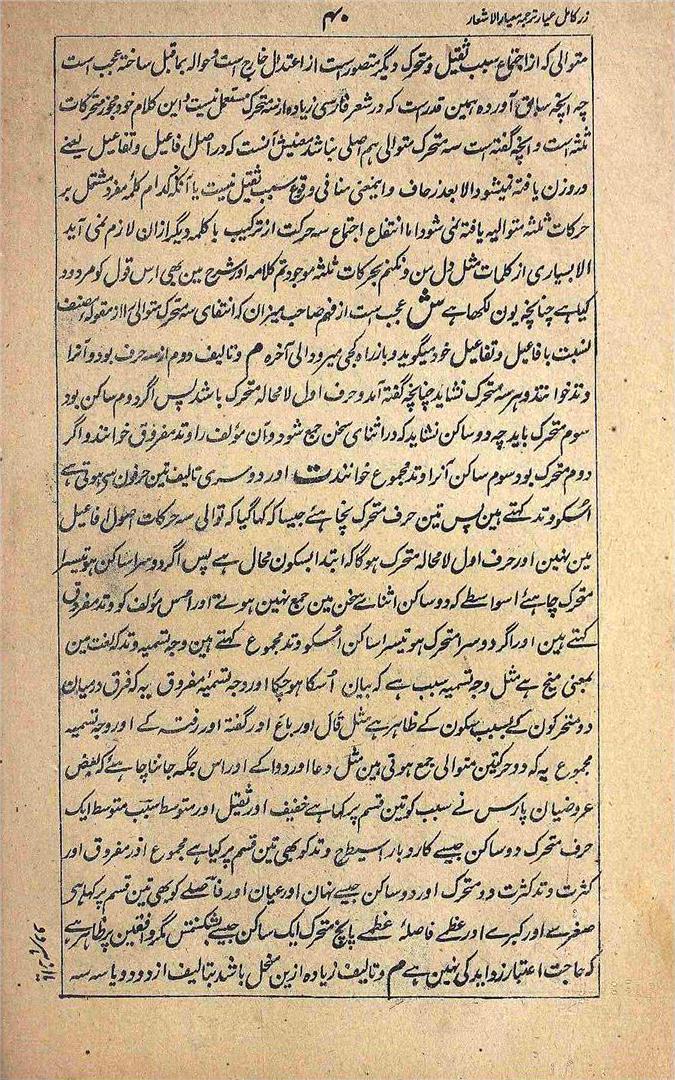 زر کامل عیار ترجمہ معیار الاشعار
۴۰
متوالی کہ از اجتماع سبب ثقیل و متحرک دیگر متصور ست از اعتدال خارج ست و حوالہ بما قبل ساختہ عجب است
چہ انچہ سابق آوردہ ہمین قدر ست کہ در شعر فارسی زیادہ از سہ متحرک مستعمل نیست و این کلام خود مجوز متحرکات
ثلثہ است و انچہ گفتہ است سہ متحرک متوالی ہم اصلی نباشد معنیش آنست کہ در اصل افاعیل و تفاعیل یعنے
در وزن یافتہ نمیشود الا بعد زحاف و اینمعنی منافی وقوع سبب ثقیل نیست یا آنکہ کدام کلمہ مفرد مشتمل بر
حرکات ثلثہ متوالیہ یافتہ نمی شود اما انتفاع اجتماع سہ حرکت از ترکیب با کلمہ دیگر ازان لازم نمی آید
الا بسیاری از کلمات مثل دل من و نکنم بحرکات ثلثہ موجود تم کلامہ اور شرح مین بھی اس قول کو مردود
کیا ہے چنانچہ یون لکھا ہے ش عجب ست از فہم صاحب میزان کہ انتفای سہ متحرک متوالی را از مقولہ مصنف
نسبت بافاعیل و تفاعیل خود میگوید و باز راہ کجی میرود الی آخرہ م و تالیف دوم از سہ حرف بود و آنرا
وتد خوانند و ہر سہ متحرک نشاید چنانچہ گفتہ آمد و حرف اول لا محالہ متحرک باشد پس اگر دوم ساکن بود
سوم متحرک باید چہ دو ساکن نشاید کہ در اثنای سخن جمع شود و آن مؤلف را وتد مفروق خوانند و اگر
دوم متحرک بود سوم ساکن آنرا وتد مجموع خوانند ت اور دوسری تالیف تین حرفون سے ہوتی ہے
اسکو وتد کہتے ہین پس تین حرف متحرک نچاہئے جیسا کہ کہا گیا کہ توالی سہ حرکات اصول افاعیل
مین نہین اور حرف اول لا محالہ متحرک ہوگا کہ ابتدا بسکون محال ہے پس اگر دوسرا ساکن ہو تیسرا
متحرک چاہئے اسواسطے کہ دو ساکن اثنائے سخن مین جمع نہین ہوتے اور اس مؤلف کو وتد مفروق
کہتے ہین اور اگر دوسرا متحرک ہو تیسرا ساکن اسکو وتد مجموع کہتے ہین وجہ تسمیہ وتد کہ لغت مین
بمعنی میخ ہے مثل وجہ تسمیہ سبب ہے کہ بیان اسکا ہو چکا اور وجہ تسمیۂ مفروق یہ کہ فرق درمیان
دو متحرکون کے بسبب سکون کے ظاہر ہے مثل قال اور باغ اور گفتہ اور رفتہ کے اور وجہ تسمیہ
مجموع یہ کہ دو حرکتین متوالی جمع ہوتی ہین مثل دعا اور دوا کے اور اس جگہ جاننا چاہئے کہ بعض
عروضیان پارس نے سبب کو تین قسم پر کہا ہے خفیف اور ثقیل اور متوسط سبب متوسط ایک
حرف متحرک دو ساکن جیسے کار و بار اسیطرح وتد کو بھی تین قسم پر کہا ہے مجموع اور مفروق اور
کثرت وتد کثرت دو متحرک اور دو ساکن جیسے نہان اور عیان اور فاصلے کو بھی تین قسم پر کہا ہے
صغرے اور کبرے اور عظمے فاصلۂ عظمے پانچ متحرک ایک ساکن جیسے بشکنمتس مگر واقفین پر ظاہر ہے
کہ حاجت اعتبار زواید کی نہین ہے م و تالیف زیادہ ازین منحل باشد بتالیف از دو دو یا سہ سہ